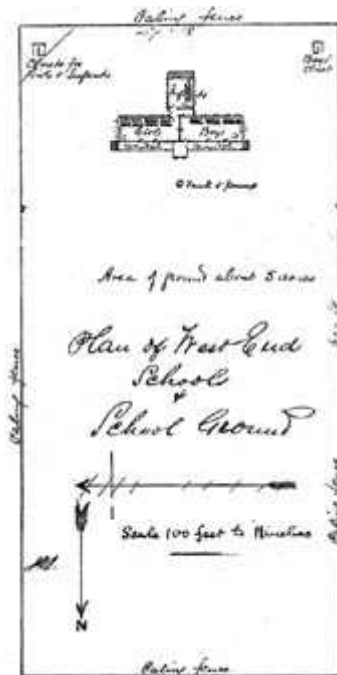 Paling fence
Closets for
Girls & Infants
Boys'
Closet
Infants
Girls
Boys
Tank & pump
Area of ground about 5 acres
Plan of West End
Schools
&
School Ground
Paling fence
Paling fence
Scale 100 feet to
N
Paling fence